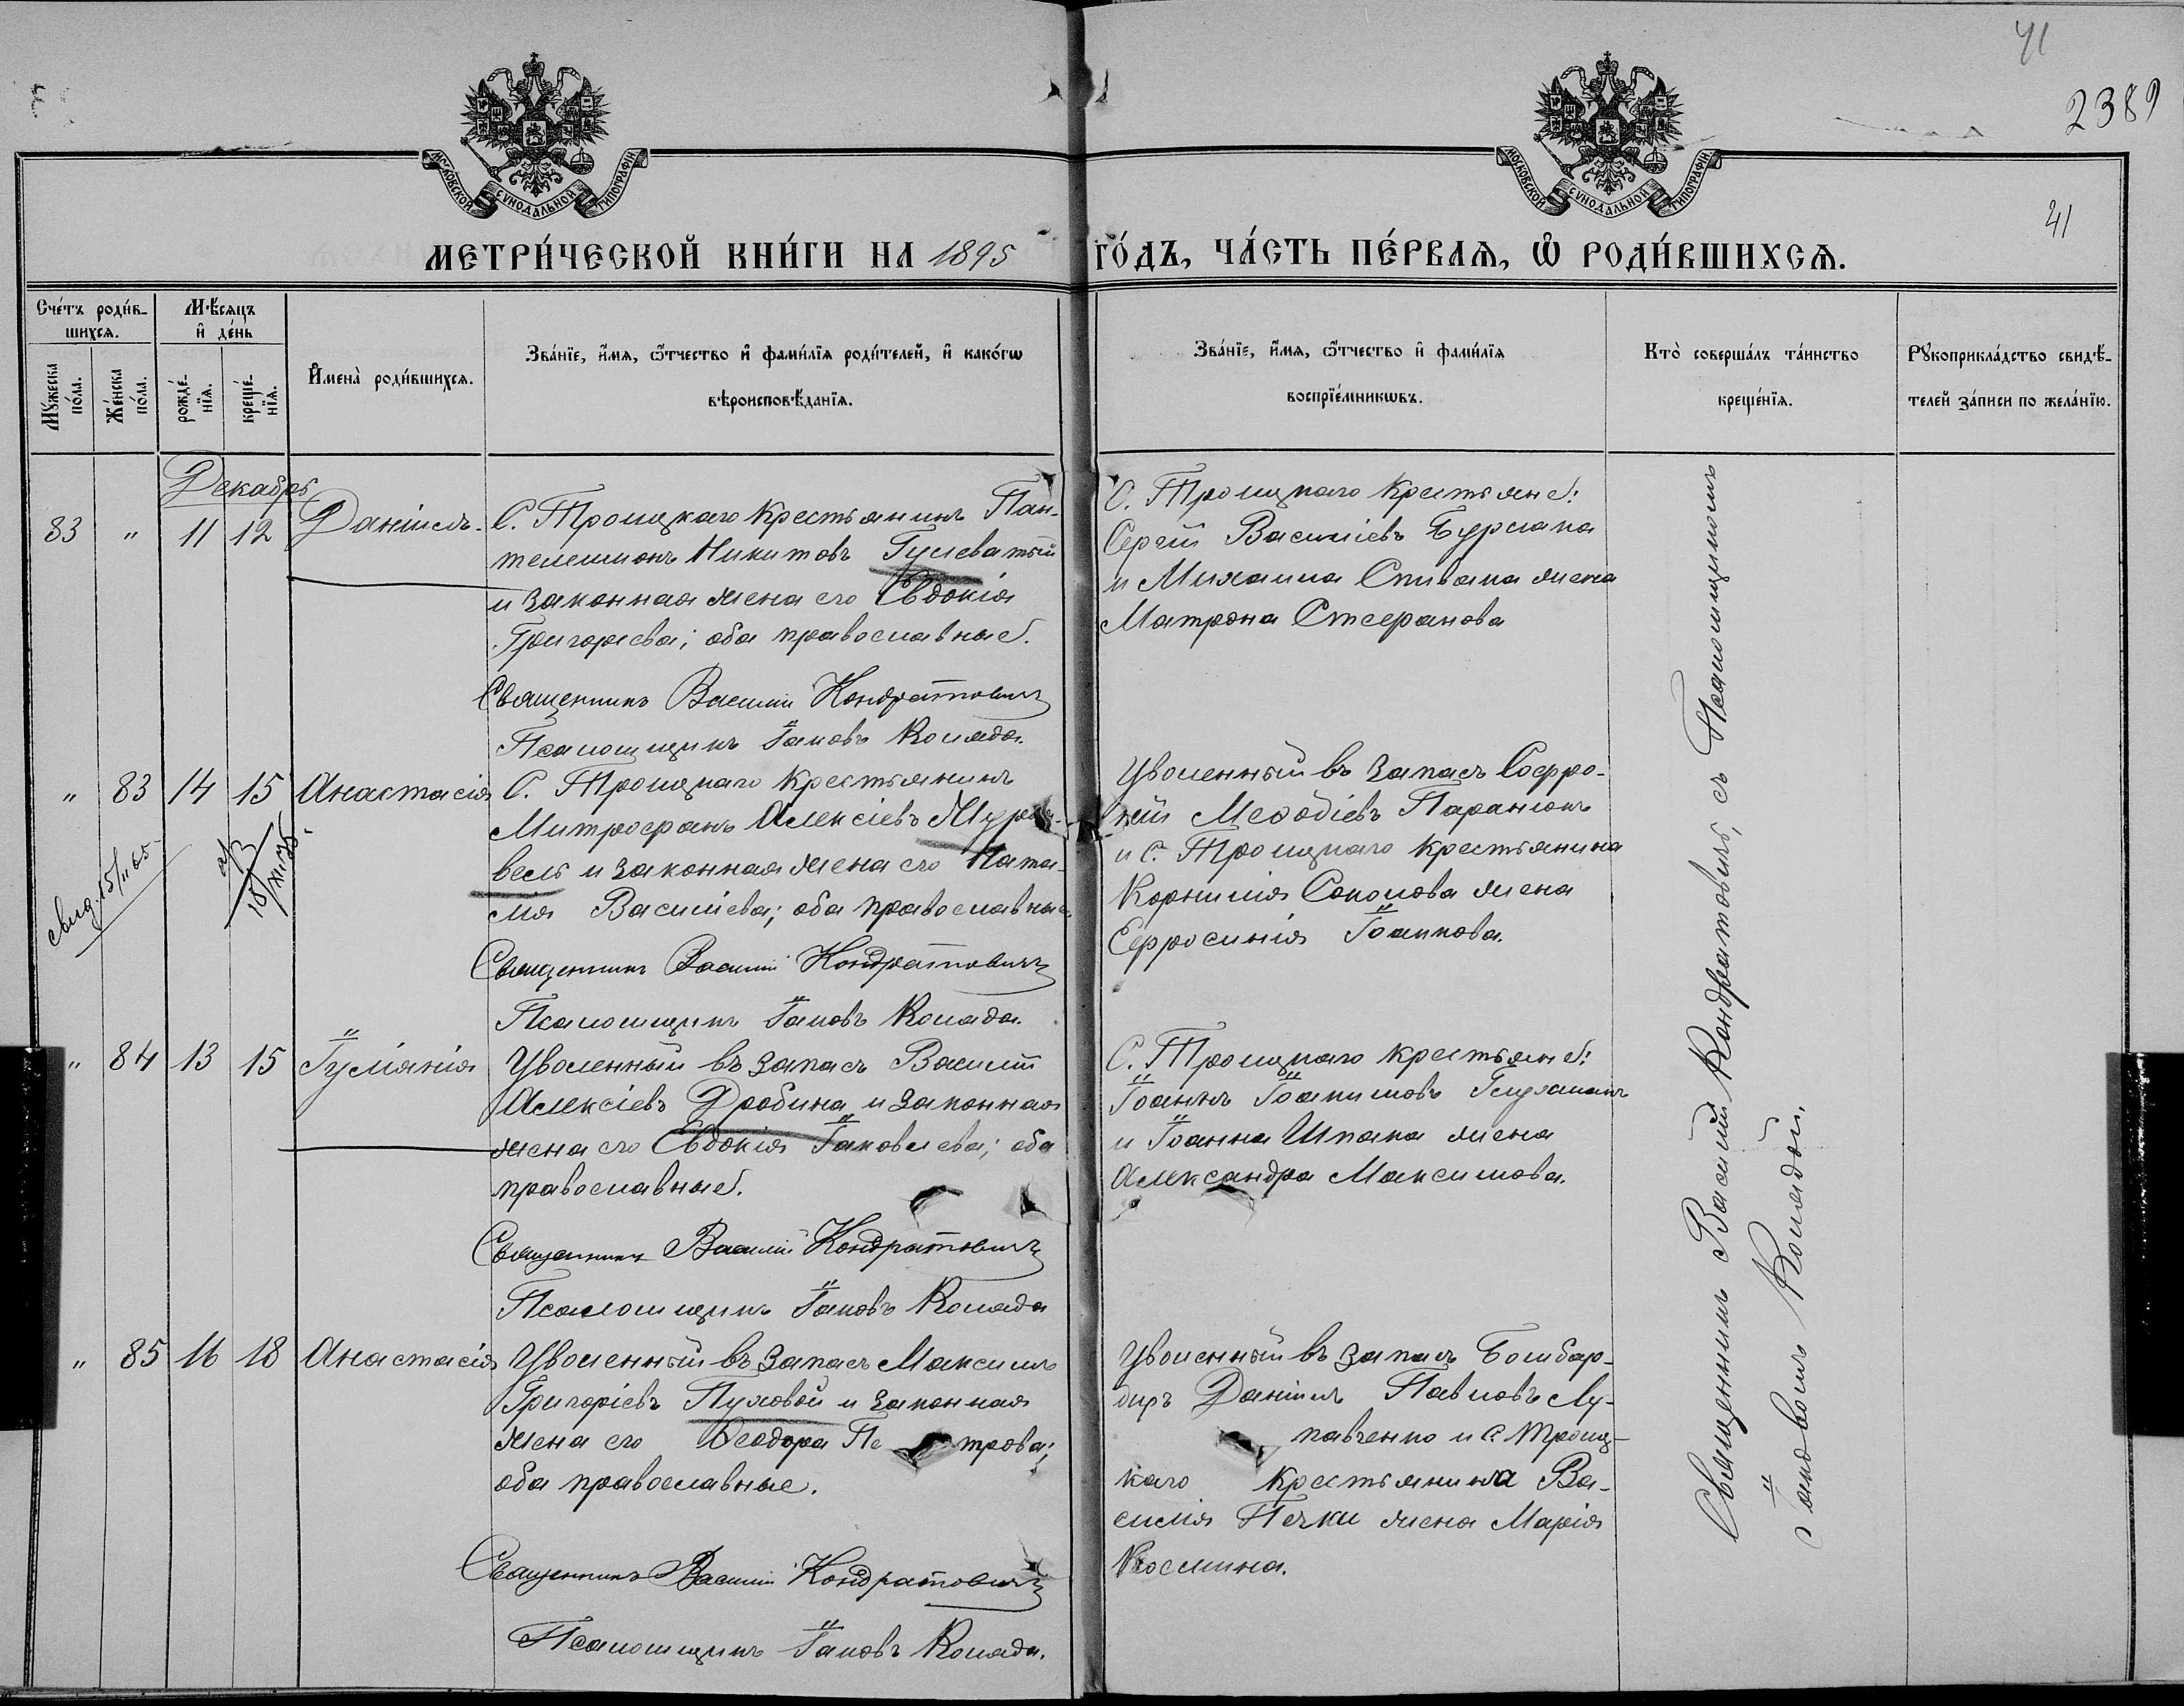 41
2389
41
МОСКОВСКОЙ СУНОДАЛЬНОЙ ТИПОГРАФІИ.
МОСКОВСКОЙ СУНОДАЛЬНОЙ ТИПОГРАФІИ.
МЕТРИ́ЧЕСКОЙ КНИ́ГИ НА 1895 ГО́ДЪ, ЧА́СТЬ ПЕ́РВАѦ, Ѽ РОДИ́ВШИХСѦ.
Сче́тъ роди́в-
шихсѧ.
Мѣ́сѧцъ
и҆ де́нь
Мꙋ́жеска по́ла.
Же́нска по́ла.
рожде́-
нїѧ.
креще́-
нїѧ.
И҆мена̀ роди́вшихсѧ.
Зва́нїе, и҆́мѧ, ѻ҆́тчество и҆ фами́лїѧ роди́телей, и҆ како́гѡ
вѣроисповѣ́данїѧ.
Зва́нїе, и҆́мѧ, ѻ҆́тчество и҆ фами́лїѧ
воспрїе́мникѡвъ.
Кто̀ соверша́лъ та́инство
креще́нїѧ.
Рꙋкоприкла́дство свидѣ́-
телей за́писи по жела́нїю.
Декабрь
83 " 11 12 Даніилъ.
С. Троицкаго крестьянинъ Пан-
телеимонъ Никитовъ Гулеватый
и законная жена его Евдокія
Григорьева; оба православные.
Священникъ Василій Кондратовичъ
Псаломщикъ Іаковъ Коляда.
С. Троицкаго крестьяне:
Сергій Василіевъ Бурлака
и Михаила Спивака жена
Матрона Стефанова
" 83 14 15 Анастасія
свид. 15/II 65
С. Троицкаго крестьянинъ
Митрофанъ Алексіевъ
и законная жена его Ната-
лія Василіева; оба православные
Священникъ Василій Кондратовичъ
Псаломщикъ Іаковъ Коляда.
Уволенный въ запасъ Софро-
ній Меѳодіевъ Паранюкъ
и С. Троицкаго крестьянина
Корнилія Соколова жена
Ефросинія Іоаннова.
" 84 13 15 Іуліанія
Уволенный въ запасъ Василій
Алексіевъ Дробина и законная
жена его Евдокія Іаковлева; оба
православные.
Священникъ Василій Кондратовичъ
Псаломщикъ Іаковъ Коляда
С. Троицкаго крестьяне:
Іоаннъ Іоакимовъ
и Іоанна Шпака жена
Александра Максимова.
" 85 16 18 Анастасія
Уволенный въ запасъ Максимъ
Григоріевъ Пуховой и законная
жена его Ѳеодора Петрова;
оба православные.
Священникъ Василій Кондратовичъ
Псаломщикъ Іаковъ Коляда.
Уволенный въ запасъ Бомбар-
диръ Даніилъ Павловъ Лу-
павченко и С. Троиц-
каго крестьянина Ва-
силія Печки жена Марія
Космина.
Священникъ Василій Кондратовичъ, съ Псаломщикомъ
Іаковомъ Колядой.